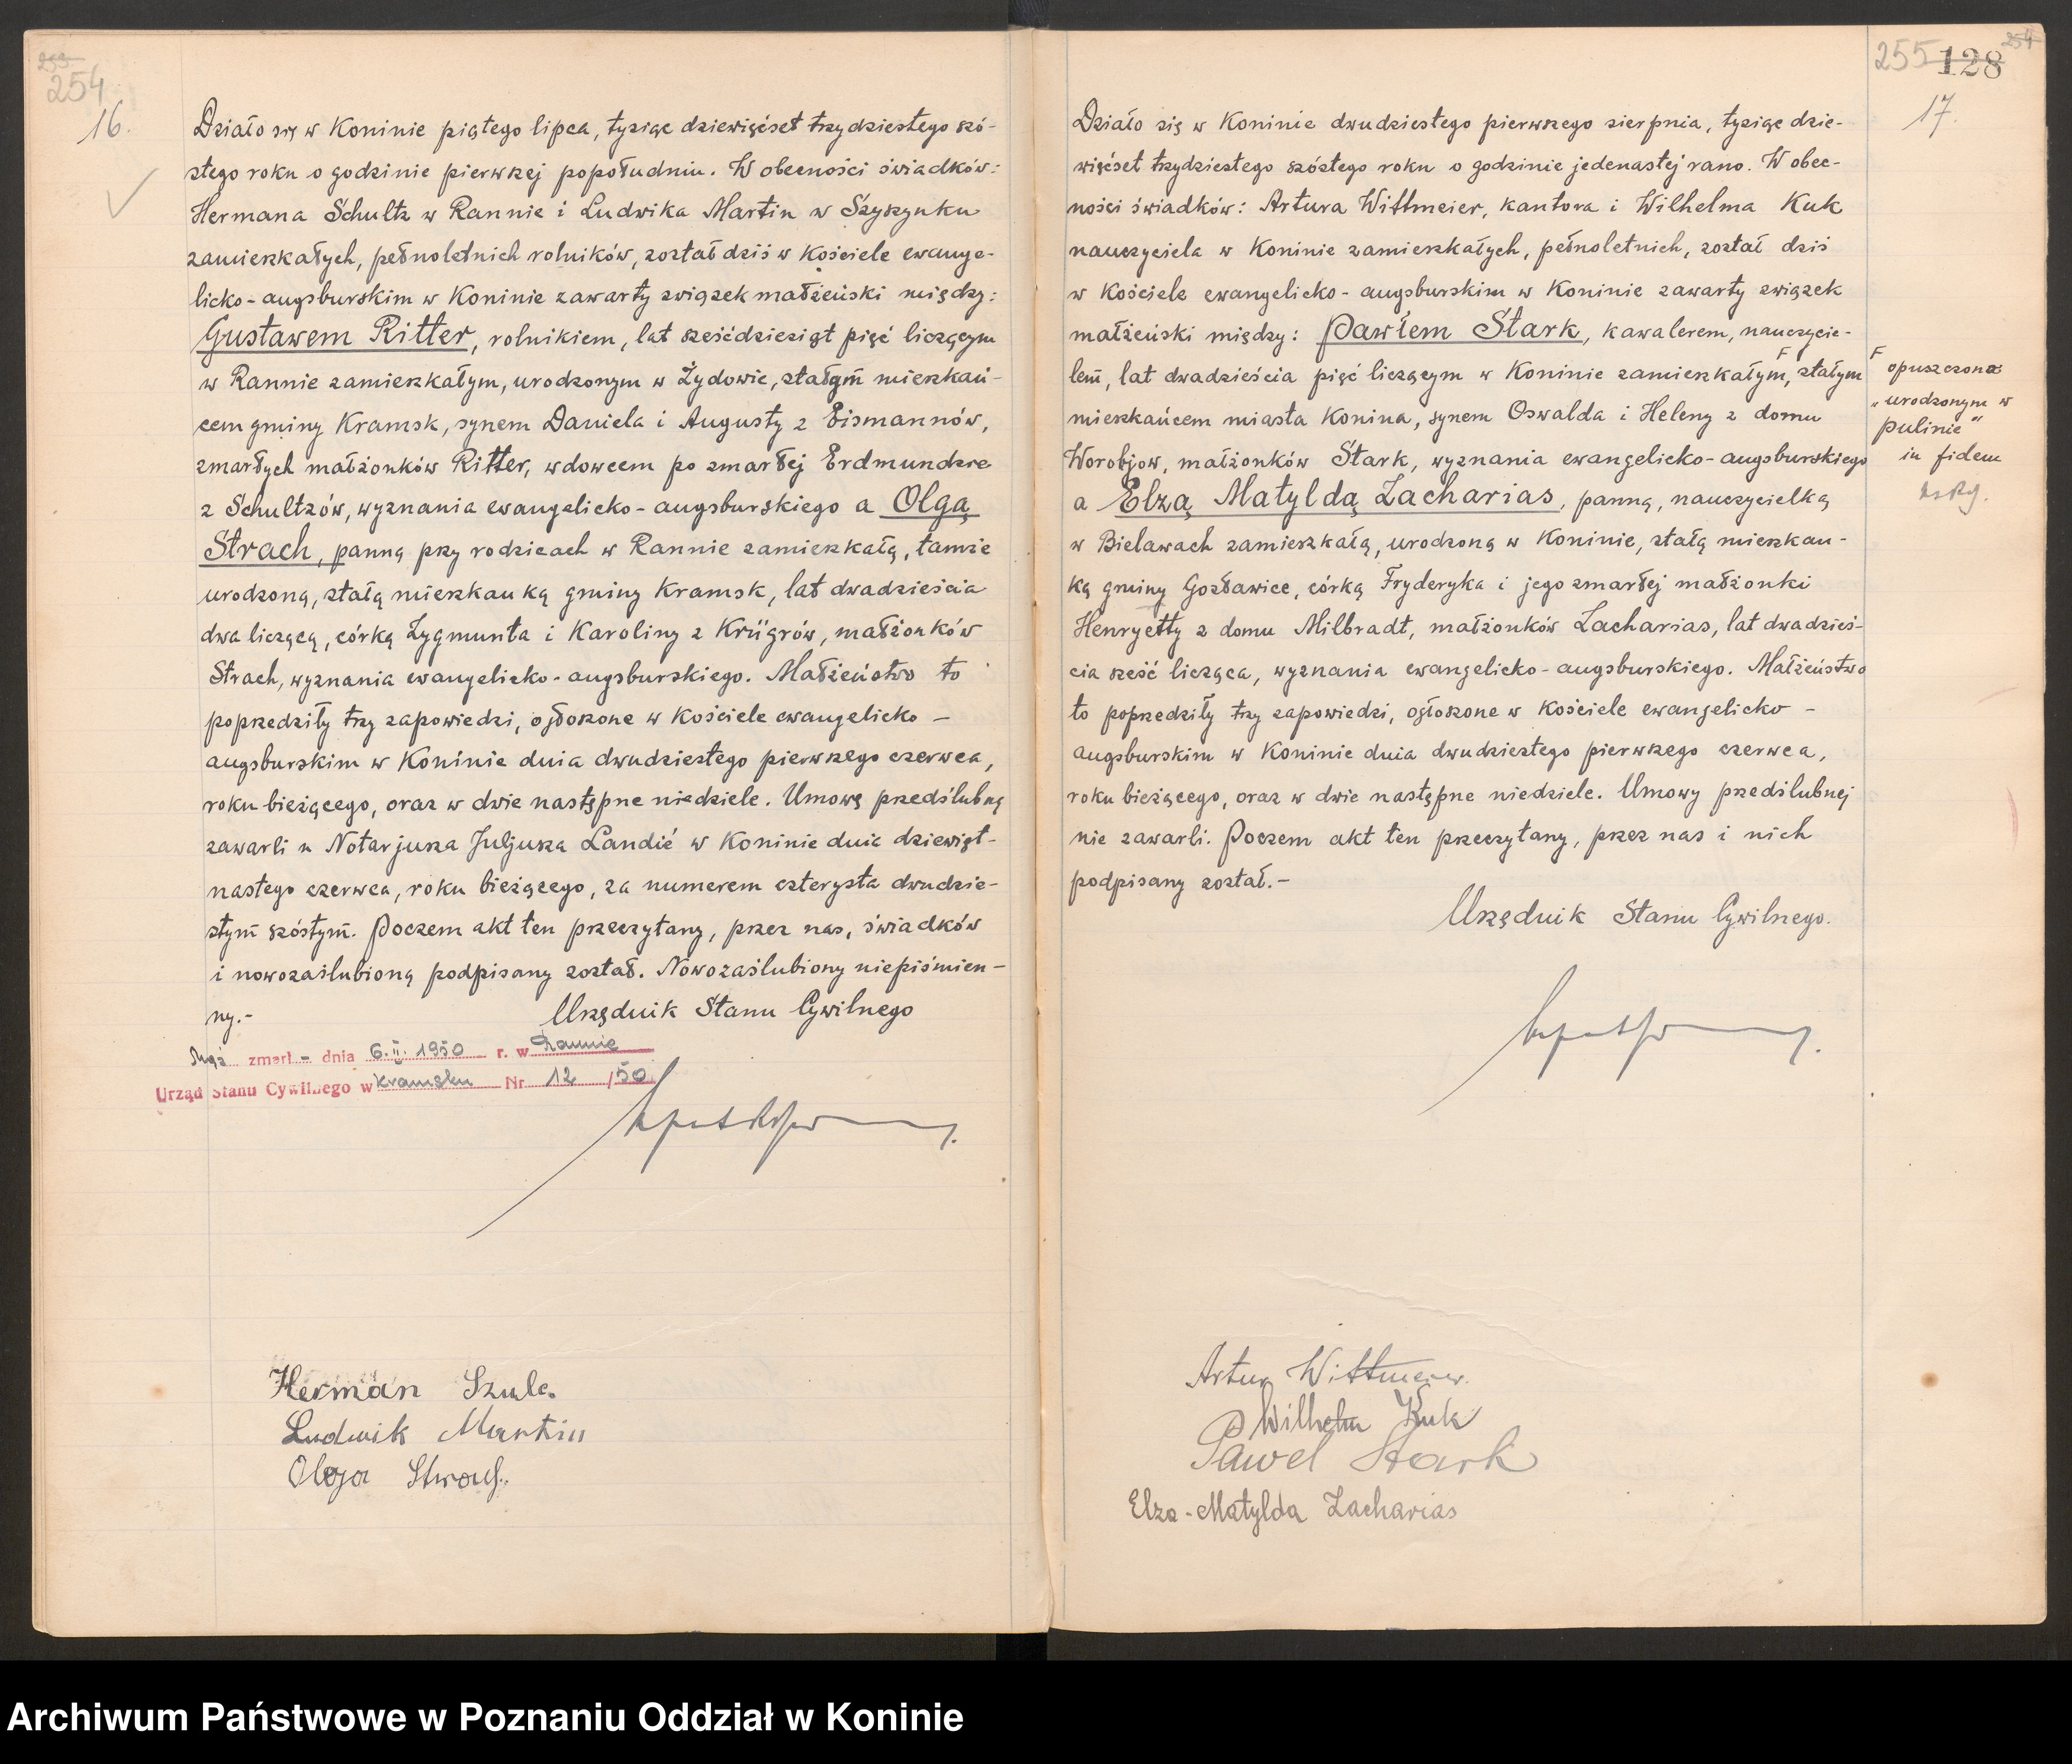 253
254
16.
Działo się w Koninie piątego lipca, tysiąc dziewięćset trzydziestego szó-
stego roku o godzinie pierwszej popołudniu. W obecności świadków:
Hermana Schultz w Rannie i Ludwika Martin w Szyszynku
zamieszkałych, pełnoletnich rolników, został dziś w Kościele ewange-
licko-augsburskim w Koninie zawarty związek małżeński między:
Gustawem Ritter, rolnikiem, lat sześćdziesiąt pięć liczącym
w Rannie zamieszkałym, urodzonym w Żydowie, stałym mieszkań-
cem gminy Kramsk, synem Daniela i Augusty z Eismannów,
zmarłych małżonków Ritter, wdowcem po zmarłej Erdmundzie
z Schultzów, wyznania ewangelicko-augsburskiego a Olgą
Strach, panną przy rodzicach w Rannie zamieszkałą, tamże
urodzoną, stałą mieszkanką gminy Kramsk, lat dwadzieścia
dwa liczącą, córką Zygmunta i Karoliny z Krügrów, małżonków
Strach, wyznania ewangelicko-augsburskiego. Małżeństwo to
poprzedziły trzy zapowiedzi, ogłoszone w Kościele ewangelicko-
augsburskim w Koninie dnia dwudziestego pierwszego czerwca,
roku bieżącego, oraz w dwie następne niedziele. Umowę przedślubną
zawarli u Notarjusza Juljusza Landié w Koninie dnia dziewięt-
nastego czerwca, roku bieżącego, za numerem czterysta dwudzie-
stym szóstym. Poczem akt ten przeczytany, przez nas, świadków
i nowozaślubioną podpisany został. Nowozaślubiony niepiśmien-
ny.-
Urzędnik Stanu Cywilnego
Mąż zmarł - dnia 6.II.1950 r. w Rannie
Urząd Stanu Cywilnego w Kramsku Nr 12 /50
Herman Szulc
Ludwik Martin
Olga Strach
254
255 128
17.
Działo się w Koninie dwudziestego pierwszego sierpnia, tysiąc dzie-
więćset trzydziestego szóstego roku o godzinie jedenastej rano. W obec-
ności świadków: Artura Wittmeier, kantora i Wilhelma Kuk
nauczyciela w Koninie zamieszkałych, pełnoletnich, został dziś
w Kościele ewangelicko-augsburskim w Koninie zawarty związek
małżeński między: Pawłem Stark, kawalerem, nauczycie-
lem, lat dwadzieścia pięć liczącym w Koninie zamieszkałym, F stałym
mieszkańcem miasta Konina, synem Oswalda i Heleny z domu
Worobjow, małżonków Stark, wyznania ewangelicko-augsburskiego
a Elzą Matyldą Zacharias, panną, nauczycielką
w Bielawach zamieszkałą, urodzoną w Koninie, stałą mieszkan-
ką gminy Gosławice, córką Fryderyka i jego zmarłej małżonki
Henryetty z domu Milbradt, małżonków Zacharias, lat dwadzieś-
cia sześć licząca, wyznania ewangelicko-augsburskiego. Małżeństwo
to poprzedziły trzy zapowiedzi, ogłoszone w Kościele ewangelicko-
augsburskim w Koninie dnia dwudziestego pierwszego czerwca,
roku bieżącego, oraz w dwie następne niedziele. Umowy przedślubnej
nie zawarli. Poczem akt ten przeczytany, przez nas i nich
podpisany został.-
Urzędnik Stanu Cywilnego.
F opuszczono:
"urodzonym w
Pulinie"
in fidem
Artur Wittmeier
Wilhelm Kuk
Paweł Stark
Elza-Matylda Zacharias
Archiwum Państwowe w Poznaniu Oddział w Koninie